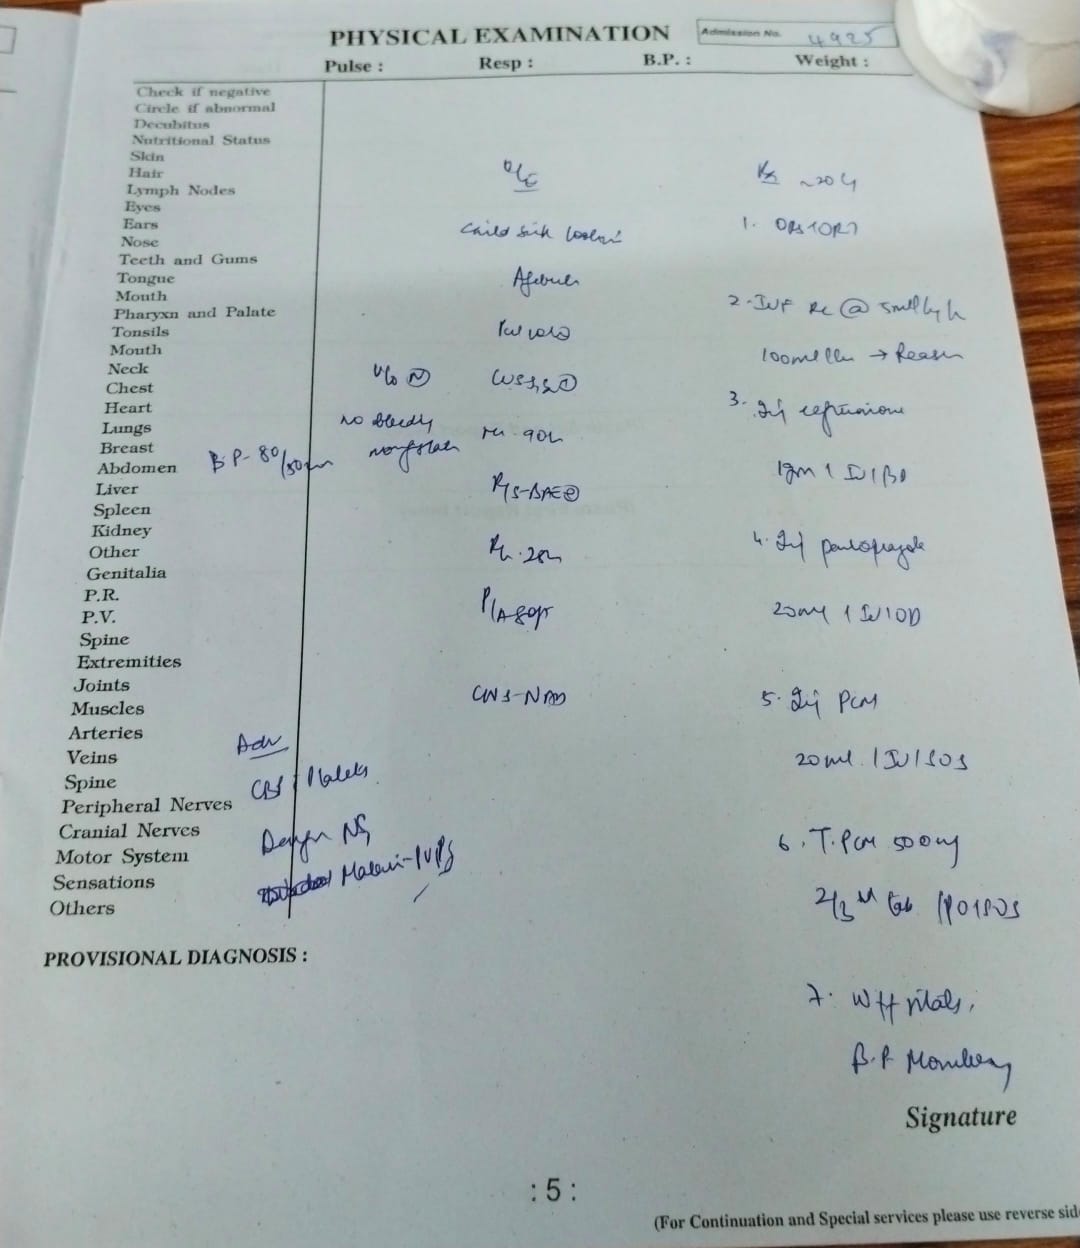 PHYSICAL EXAMINATION
Admission No. 4925
Pulse : Resp : B.P. : Weight :
Check if negative
Circle if abnormal
Decubitus
Nutritional Status
Skin
Hair
Lymph Nodes
Eyes
Ears
Nose
Teeth and Gums
Tongue
Mouth
Pharyxn and Palate
Tonsils
Mouth
Neck
Chest
Heart
Lungs
Breast
Abdomen
Liver
Spleen
Kidney
Other
Genitalia
P.R.
P.V.
Spine
Extremities
Joints
Muscles
Arteries
Veins
Spine
Peripheral Nerves
Cranial Nerves
Motor System
Sensations
Others
O/E
Child sick looking
Afebrile
U/o N CVS S1S2
no bleeding
B.P- 80/50
P/A soft
CNS-NAD
Adv
Dengue NS1
Rx
1. ORS
2. IVF RL @ 5ml/kg/h
100ml/hr →
3. Inj ceftriaxone
1gm / IV / BD
4. Inj pantoprazole
20mg / IV / OD
5. Inj PCM
20ml / IV / SOS
6. T. PCM 500mg
2/3 tab / PO / SOS
7. W/f vitals,
B.P Monitoring
PROVISIONAL DIAGNOSIS :
Signature
: 5 :
(For Continuation and Special services please use reverse sid